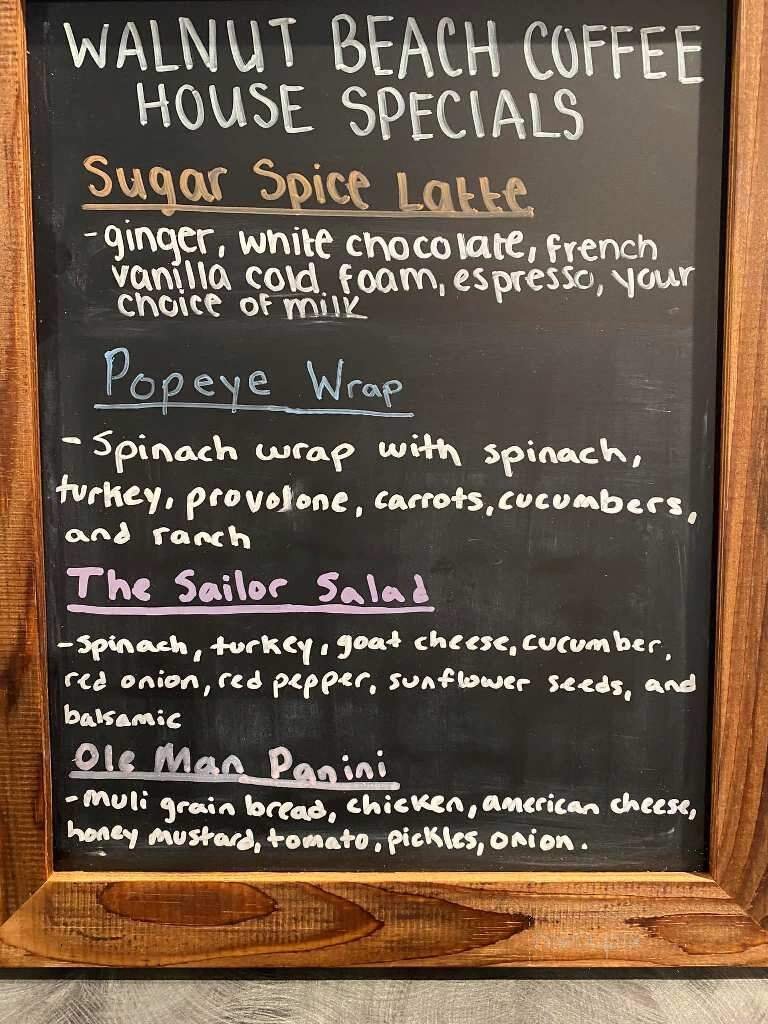 WALNUT BEACH COFFEE
HOUSE SPECIALS
Sugar Spice Latte
-ginger, white chocolate, french
vanilla cold foam, espresso, your
choice of milk
Popeye Wrap
- Spinach wrap with spinach,
turkey, provolone, carrots, cucumbers,
and ranch
The Sailor Salad
-spinach, turkey, goat cheese, cucumber,
red onion, red pepper, sunflower seeds, and
balsamic
Ole Man Panini
-muli grain bread, chicken, american cheese,
honey mustard, tomato, pickles, onion.